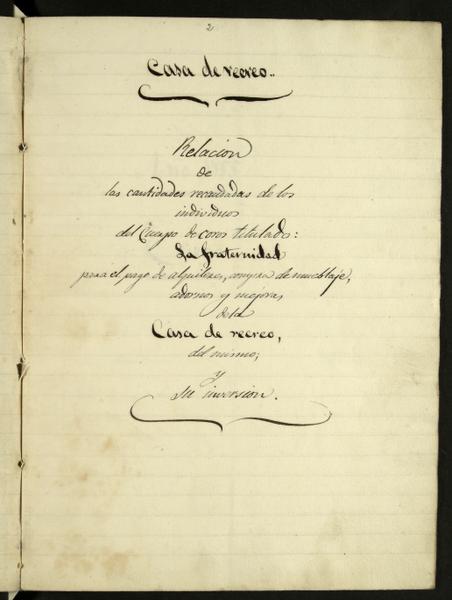 2
Casa de recreo..
Relacion
de
las cantidades recaudadas de los
individuos
del Cuerpo de coros titulado:
La fraternidad
para el pago de alquileres, compra de mueblaje,
adornos y mejoras
de la
Casa de recreo,
del mismo;
y
su inversion.